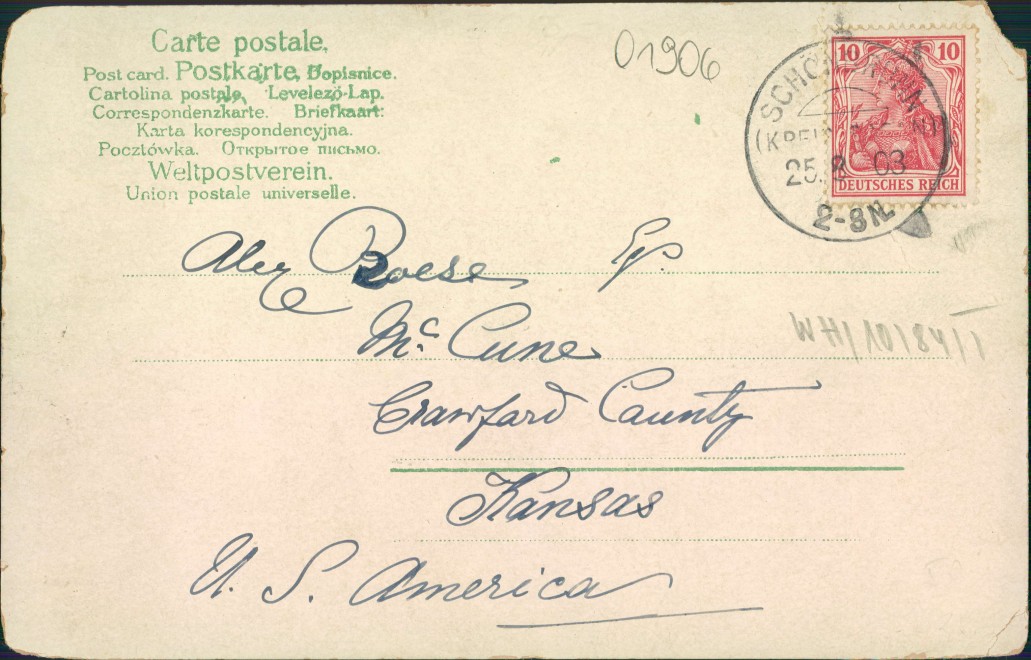 Carte postale,
Post card. Postkarte, Dopisnice.
Cartolina postale, Levelező-Lap.
Correspondenzkarte. Briefkaart:
Karta korespondencyjna.
Pocztówka. Открытое письмо.
Weltpostverein.
Union postale universelle.
01906
10 10
DEUTSCHES REICH
25. 03
2-3N.
Alex Boese Esq.
Mc Cune
Crawford County
Kansas
U. S. America
WH/10/84/1